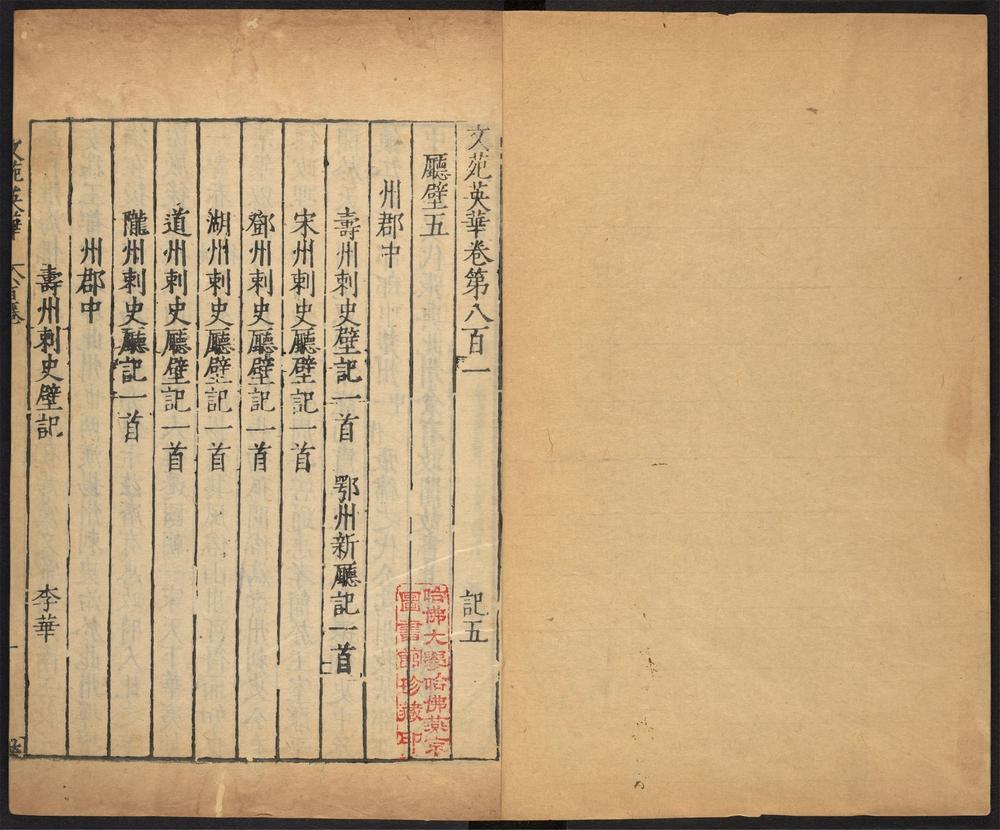 文苑英華卷第八百一 記五
廳壁五
州郡中
壽州刺史壁記一首 鄂州新廳記一首
宋州刺史廳壁記一首
鄧州刺史廳壁記一首
湖州刺史廳壁記一首
道州刺史廳壁記一首
隴州刺史廳記一首
州郡中
壽州刺史壁記 李華
文苑英華 八百一卷 一
哈佛大學哈佛燕京
圖書館珍藏印